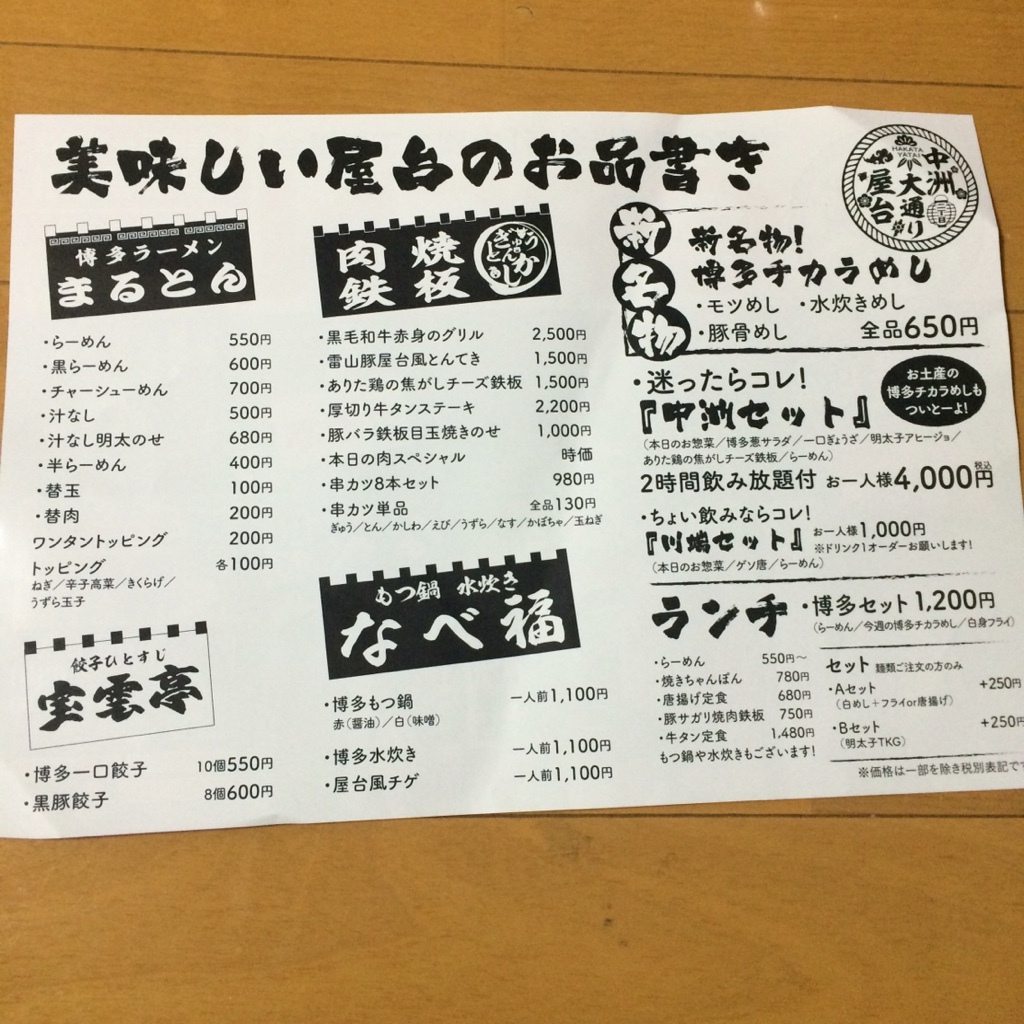 美味しい屋台のお品書き
HAKATA YATAI
中洲
大通り
屋台
博多ラーメン
まるとん
・らーめん 550円
・黒らーめん 600円
・チャーシューめん 700円
・汁なし 500円
・汁なし明太のせ 680円
・半らーめん 400円
・替玉 100円
・替肉 200円
ワンタントッピング 200円
トッピング 各100円
ねぎ／辛子高菜／きくらげ／
うずら玉子
餃子ひとすじ
宝雲亭
・博多一口餃子 10個550円
・黒豚餃子 8個600円
肉 焼
鉄 板
・黒毛和牛赤身のグリル 2,500円
・雷山豚屋台風とんてき 1,500円
・ありた鶏の焦がしチーズ鉄板 1,500円
・厚切り牛タンステーキ 2,200円
・豚バラ鉄板目玉焼きのせ 1,000円
・本日の肉スペシャル 時価
・串カツ8本セット 980円
・串カツ単品 全品130円
ぎゅう／とん／かしわ／えび／うずら／なす／かぼちゃ／玉ねぎ
もつ鍋 水炊き
なべ福
・博多もつ鍋 一人前1,100円
赤（醤油）／白（味噌）
・博多水炊き 一人前1,100円
・屋台風チゲ 一人前1,100円
新名物
新名物！
博多チカラめし
・モツめし ・水炊きめし
・豚骨めし 全品650円
・迷ったらコレ！
『中洲セット』
お土産の
博多チカラめしも
ついとーよ！
（本日のお惣菜／博多葱サラダ／一口ぎょうざ／明太子アヒージョ／
ありた鶏の焦がしチーズ鉄板／らーめん）
2時間飲み放題付 お一人様4,000円税込
・ちょい飲みならコレ！
『川端セット』 お一人様1,000円
※ドリンク1オーダーお願いします！
（本日のお惣菜／ゲソ唐／らーめん）
ランチ ・博多セット 1,200円
（らーめん／今週の博多チカラめし／白身フライ）
・らーめん 550円～
・焼きちゃんぽん 780円
・唐揚げ定食 680円
・豚サガリ焼肉鉄板 750円
・牛タン定食 1,480円
もつ鍋や水炊きもございます！
セット 麺類ご注文の方のみ
・Aセット +250円
（白めし＋フライor唐揚げ）
・Bセット +250円
（明太子TKG）
※価格は一部を除き税別表記で